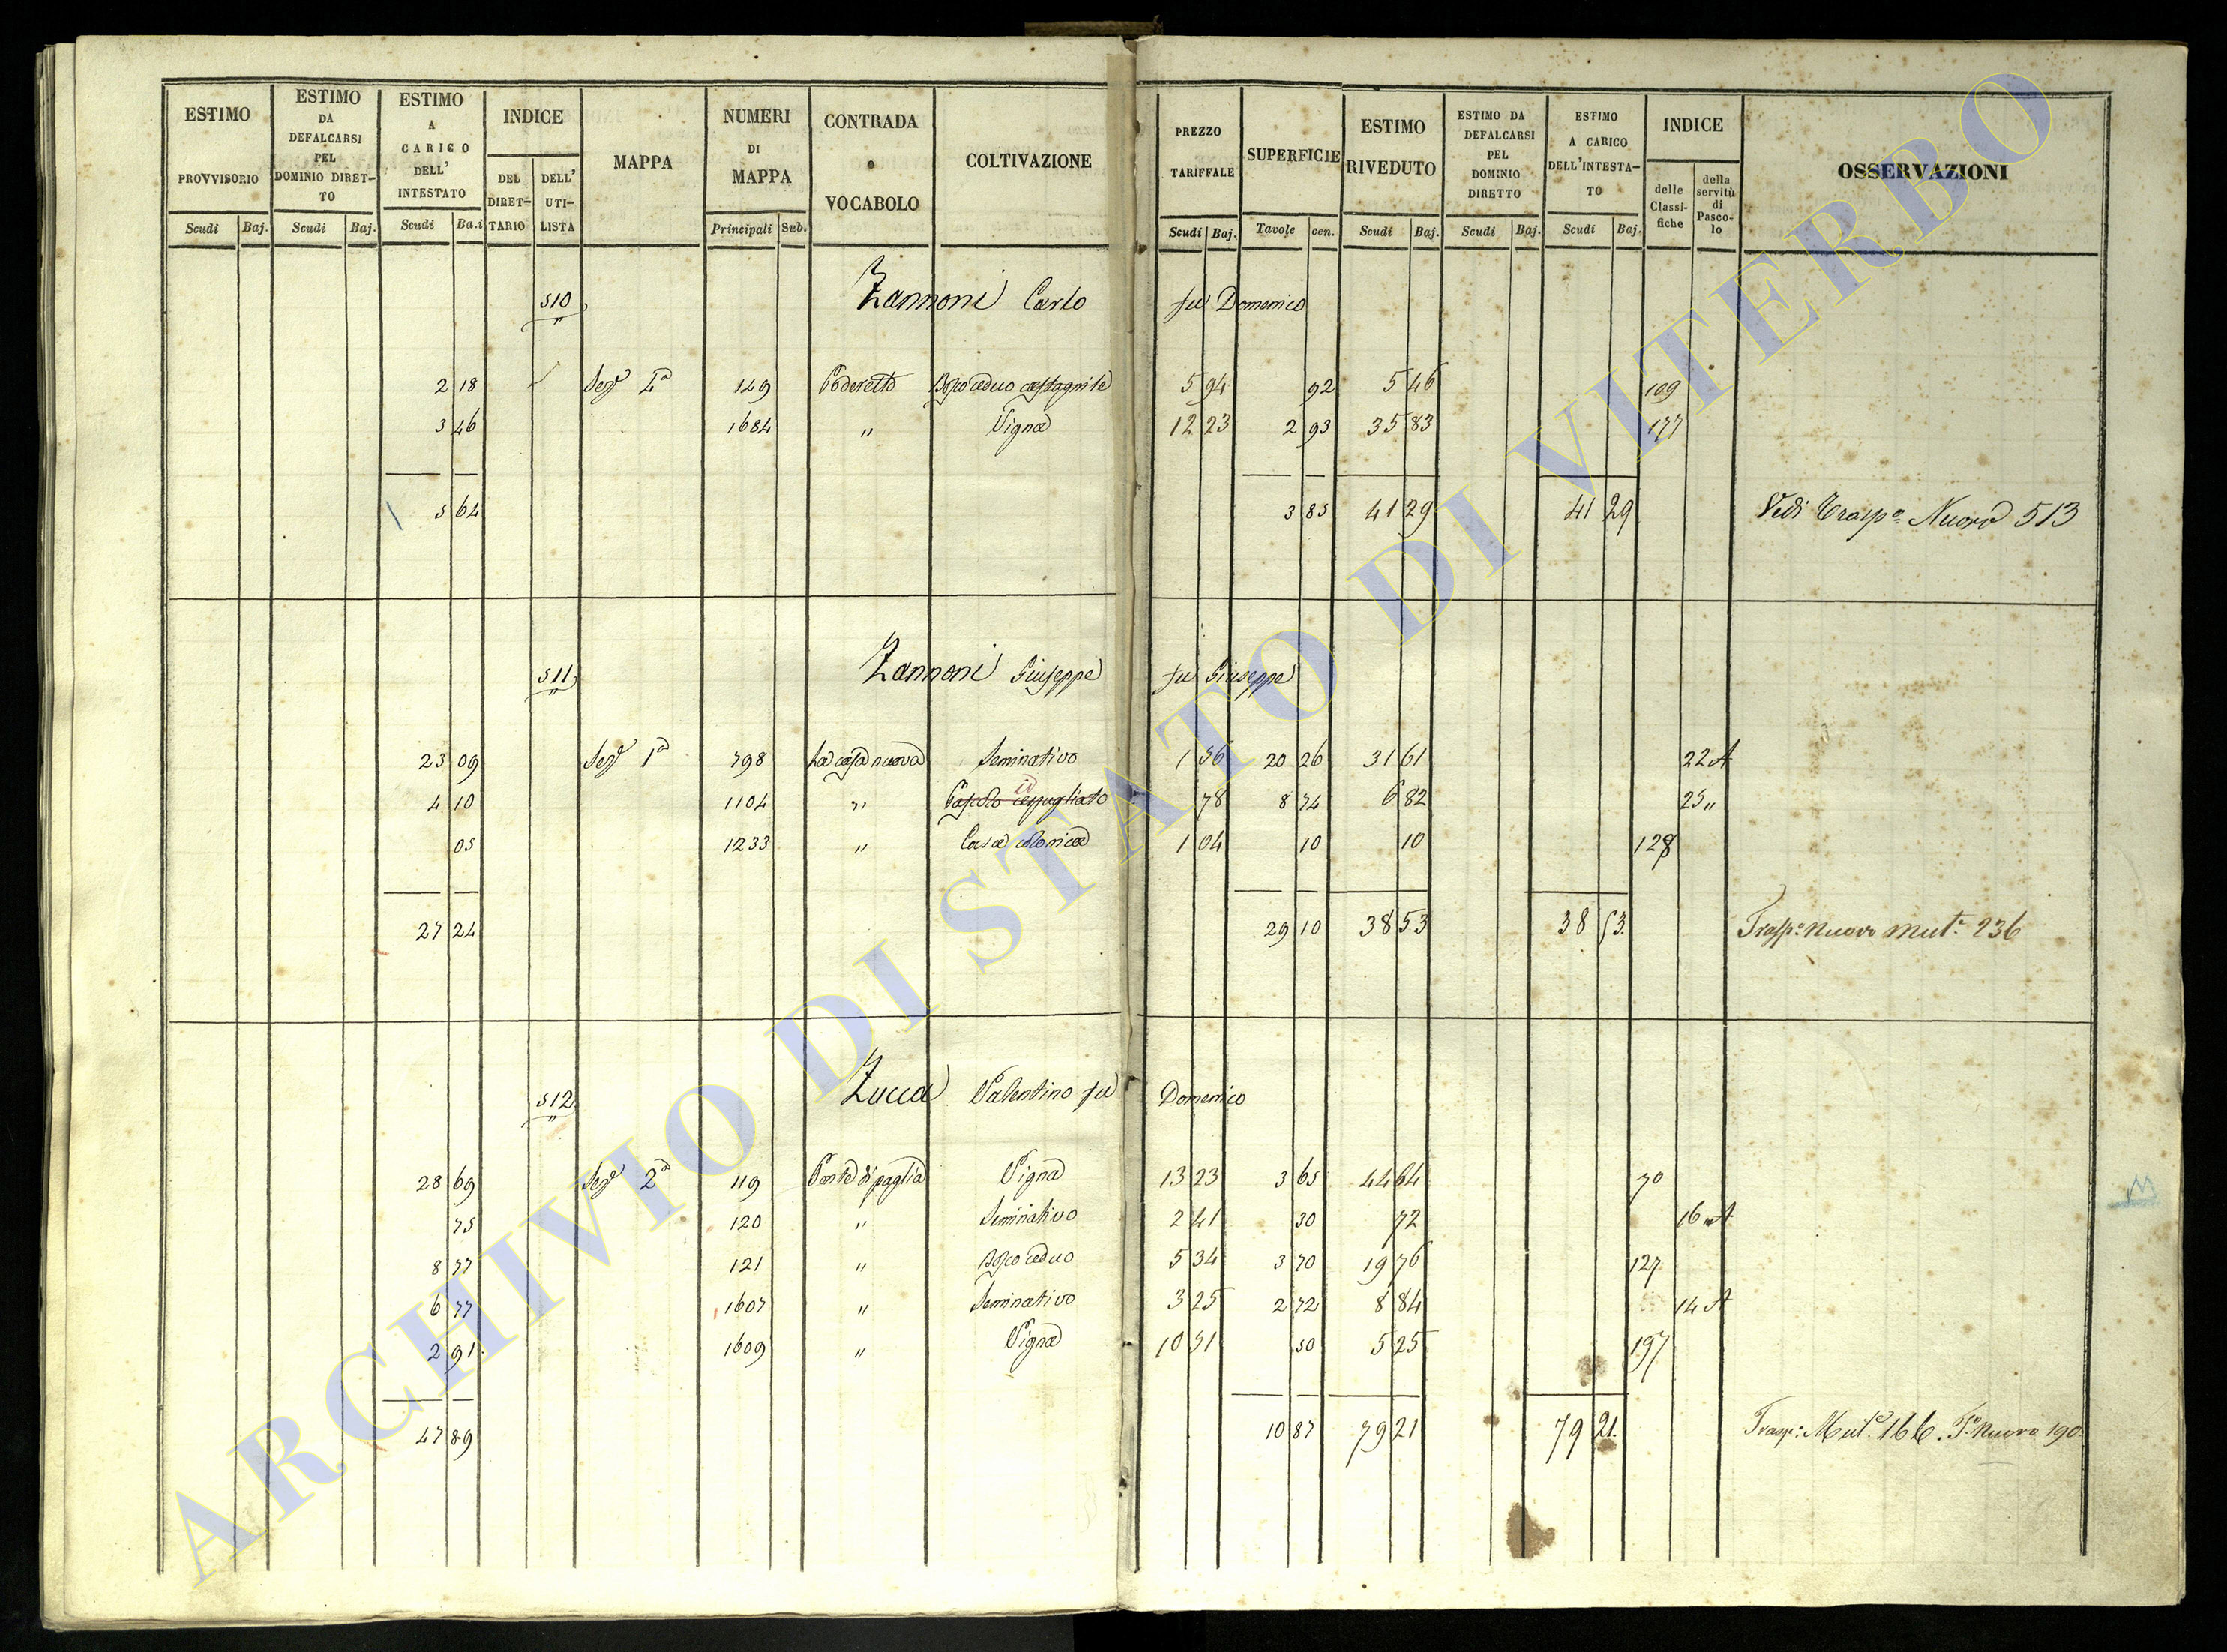 ESTIMO PROVVISORIO Scudi Baj.
ESTIMO DA DEFALCARSI PEL DOMINIO DIRET-TO Scudi Baj.
ESTIMO A CARICO DELL' INTESTATO Scudi Ba.i
INDICE DEL DIRET-TARIO DELL' UTI-LISTA
MAPPA
NUMERI DI MAPPA Principali Sub.
CONTRADA o VOCABOLO
COLTIVAZIONE
PREZZO TARIFFALE Scudi Baj.
SUPERFICIE Tavole cen.
ESTIMO RIVEDUTO Scudi Baj.
ESTIMO DA DEFALCARSI PEL DOMINIO DIRETTO Scudi Baj.
ESTIMO A CARICO DELL'INTESTA-TO Scudi Baj.
INDICE delle Classi-fiche della servitù di Pasco-lo
OSSERVAZIONI
510 Zannoni Carlo fu Domenico
2 18 Sez.e 4a 149 Poderetto Bosco ceduo castagnile 5 94 92 5 46 109
3 46 1684 " Vigna 12 23 2 93 35 83 177
5 64 3 85 41 29 41 29 Vedi Trasp.o Nuovo 513
511 Zannoni Giuseppe fu Giuseppe
23 09 Sez.e 1a 798 La casa nuova Seminativo 1 56 20 26 31 61 22 A
4 10 1104 " Pascolo cespugliato id 78 8 74 6 82 25 "
05 1233 " Casa colonica 1 04 10 10 128
27 24 29 10 38 53 38 53 Trasp.o Nuovo Mut.a 236
512 Zucca Valentino fu Domenico
28 69 Sez.e 2a 119 Ponte di paglia Vigna 13 23 3 65 44 64 70
75 120 " Seminativo 2 41 30 72 16 A
8 77 121 " Bosco ceduo 5 34 3 70 19 76 127
6 77 1607 " Seminativo 3 25 2 72 8 84 14 A
2 91 1609 " Vigna 10 51 50 5 25 197
47 89 10 87 79 21 79 21 Trasp.o Mut.a 166. T.o Nuovo 190
ARCHIVIO DI STATO DI VITERBO